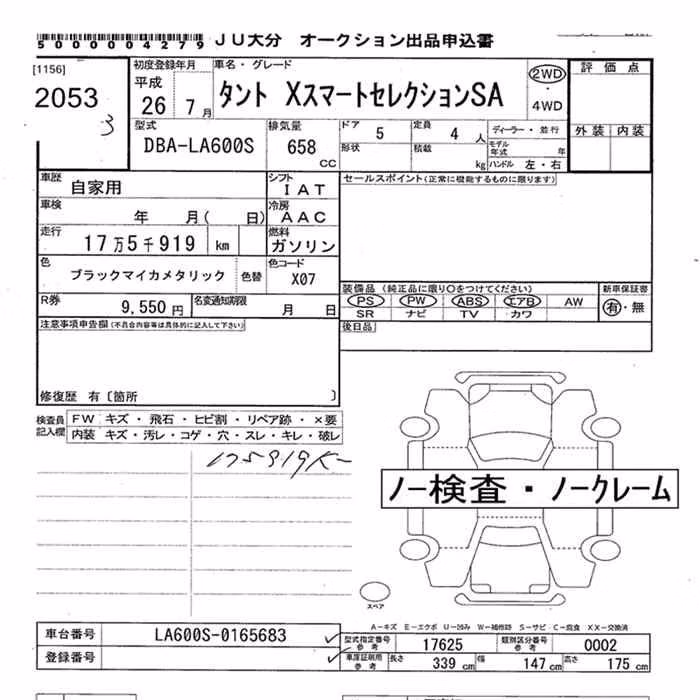 5000004279 JU大分 オークション出品申込書
[1156]
2053
3
初度登録年月
平成
26 7月
車名・グレード
タント XスマートセレクションSA
2WD
・
4WD
評価点
外装 内装
型式
DBA-LA600S
排気量
658 CC
ドア 5
定員 4 人
ディーラー・並行
形状
積載 kg
モデル年式 年
ハンドル 左・右
車歴 自家用
シフト IAT
セールスポイント(正常に機能するものに限ります)
車検 年 月( 日)
冷房 AAC
走行 17万5千919 km
燃料 ガソリン
色 ブラックマイカメタリック 色替
色コード X07
R券 9,550円
名変通知期限 月 日
装備品(純正品に限り○をつけてください)
新車保証書
PS PW ABS エアB AW
SR ナビ TV カワ
有・無
後日品
注意事項申告欄(不具合内容等は具体的に記入して下さい)
修復歴 有〔箇所 〕
検査員記入欄
FW キズ・飛石・ヒビ割・リペア跡・×要
内装 キズ・汚レ・コゲ・穴・スレ・キレ・破レ
175919K-
ノー検査・ノークレーム
スペア
A-キズ E-エクボ U-凹み W-補修跡 S-サビ C-腐食 XX-交換済
車台番号 LA600S-0165683
型式指定番号参考 17625
類別区分番号参考 0002
登録番号
車庫証明用参考 長さ 339 cm 幅 147 cm 高さ 175 cm